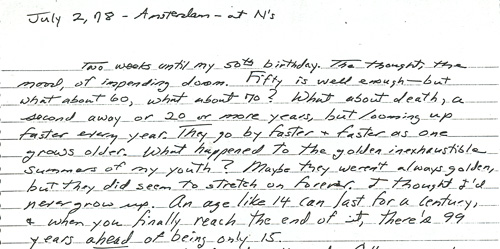 July 2, 78 - Amsterdam - at N's
Two weeks until my 50th birthday. The thought, the
mood, of impending doom. Fifty is well enough—but
what about 60, what about 70? What about death, a
second away or 20 or more years, but looming up
faster every year. They go by faster + faster as one
grows older. What happened to the golden inexhaustible
summers of my youth? Maybe they weren't always golden,
but they did seem to stretch on forever. I thought I'd
never grow up. An age like 14 can last for a century,
+ when you finally reach the end of it, there's 99
years ahead of being only 15.